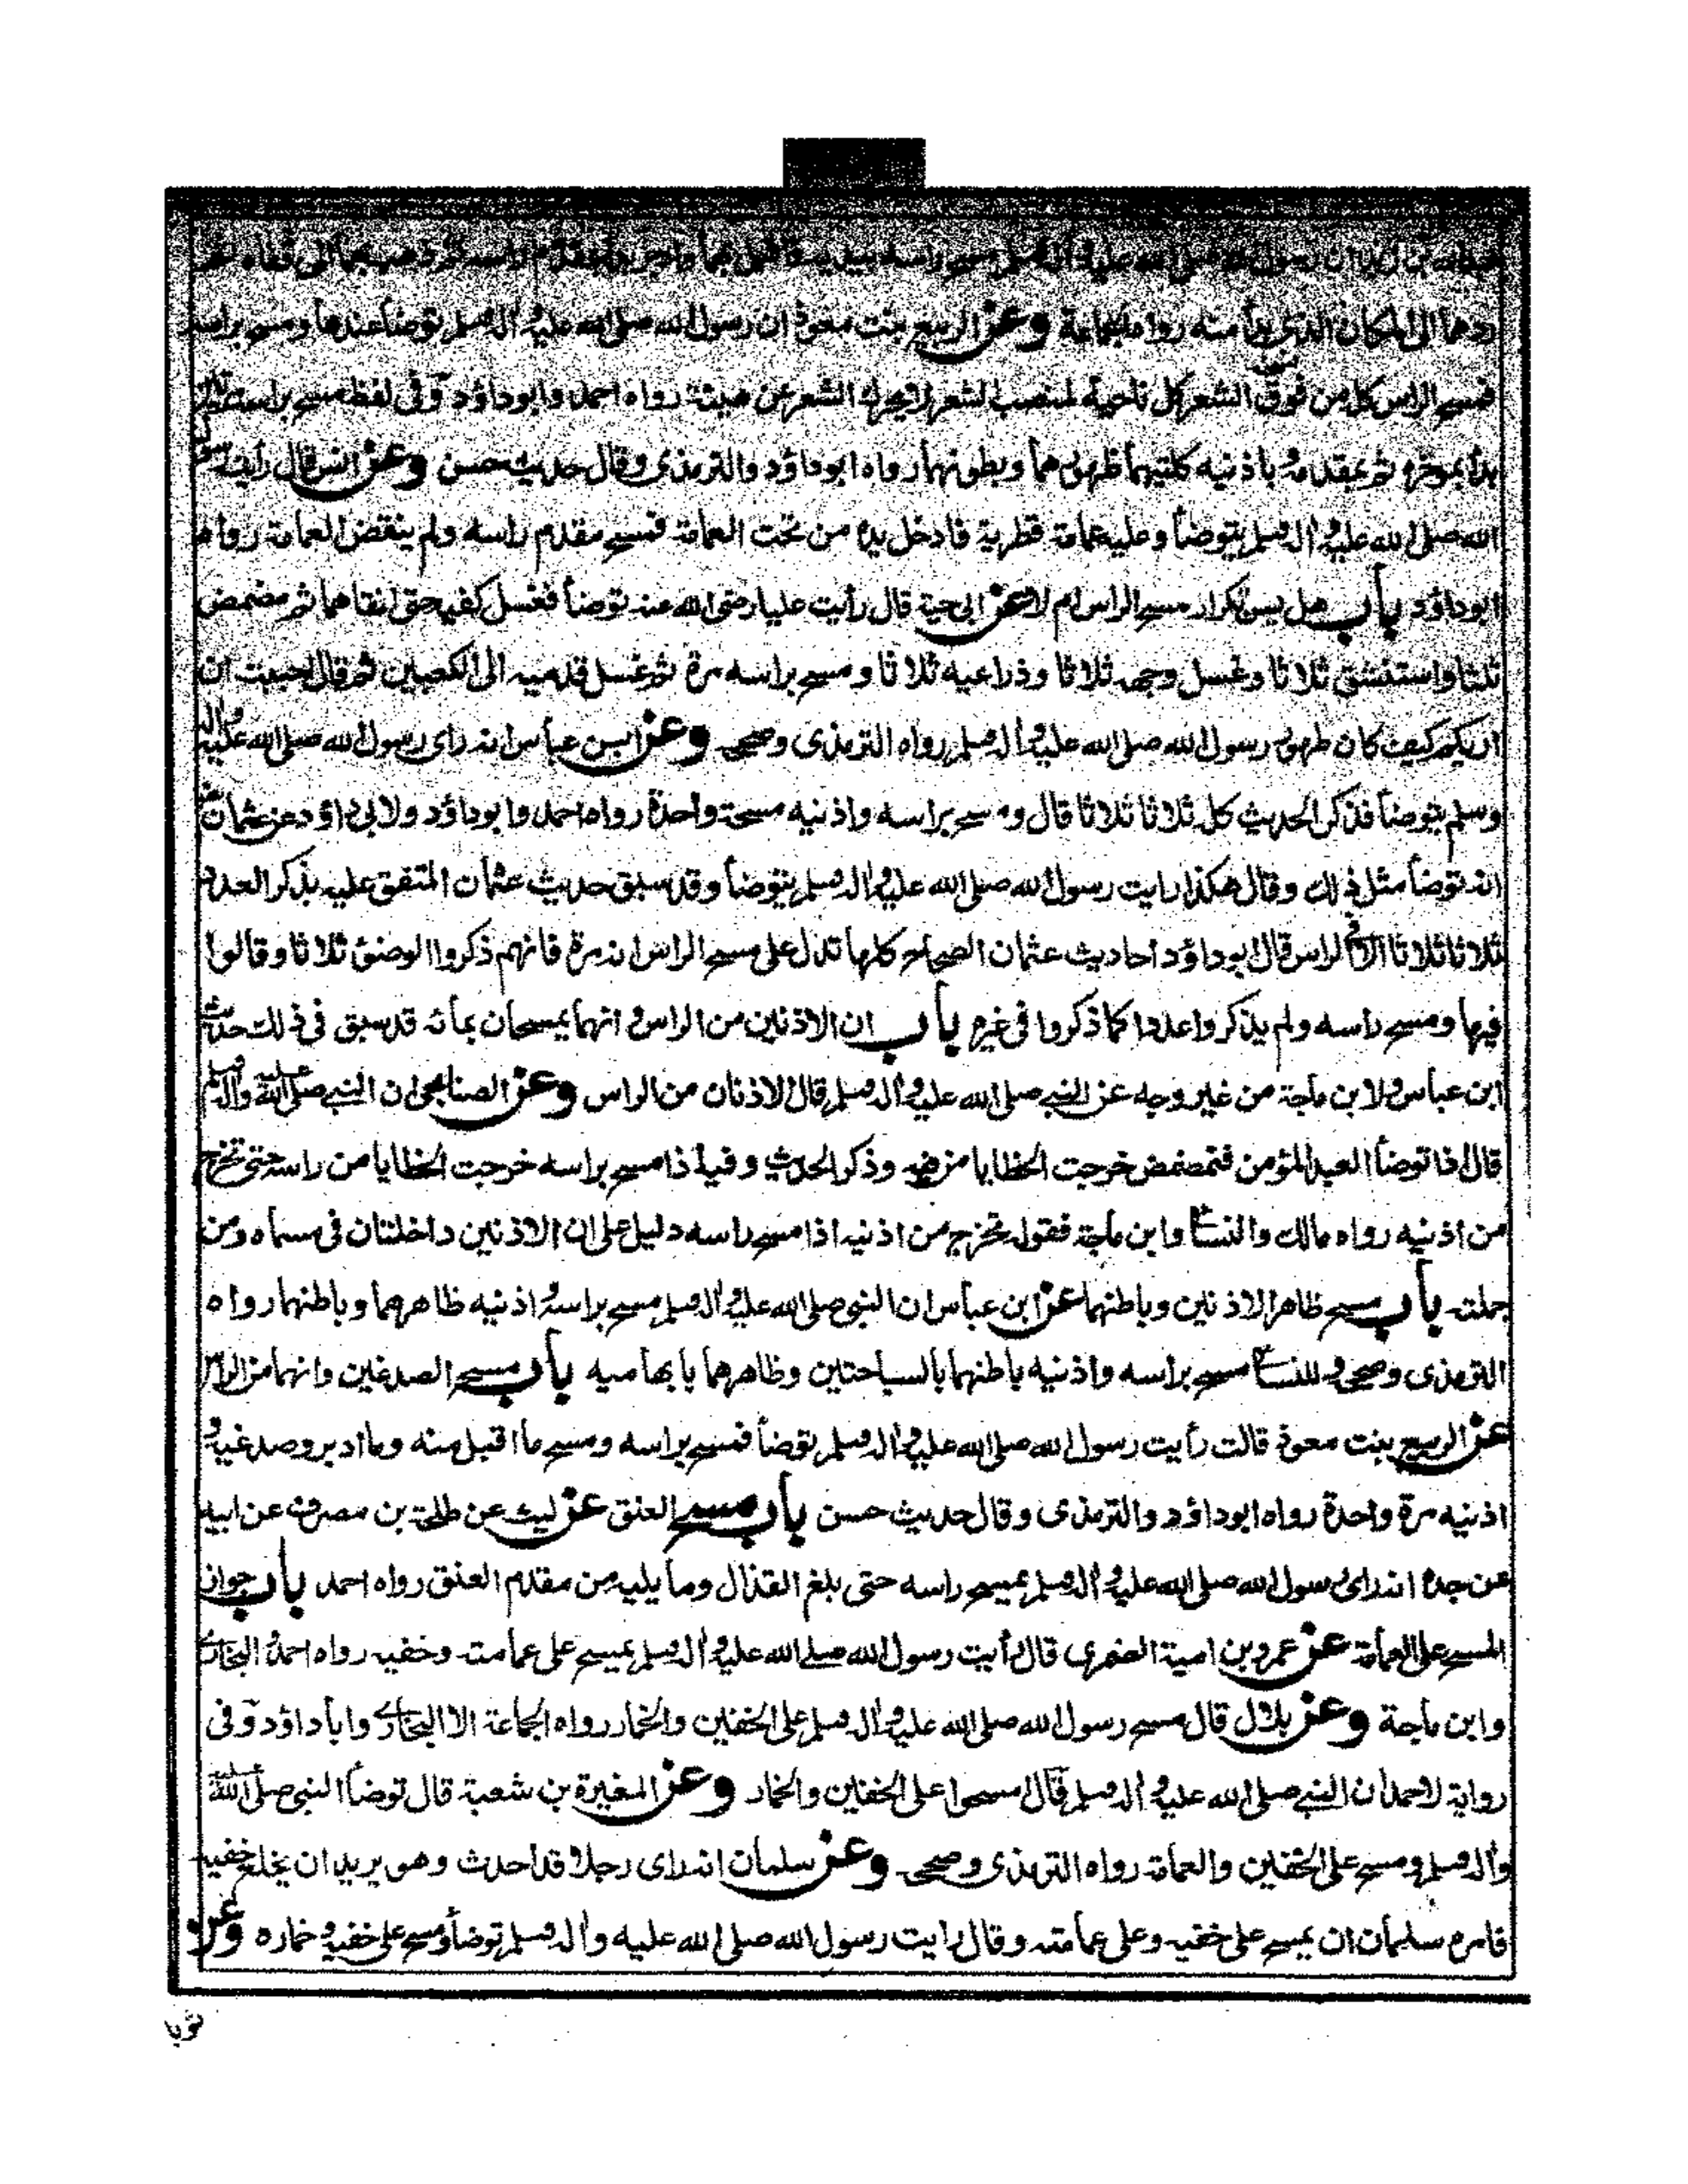 عبدالله بن زيد ان رسول الله صلى الله عليه واله وسلم مسح راسه بيديه فاقبل بهما وادبر بدأ بمقدم راسه ثم ذهب بهما الى قفاه ثم
ردهما الى المكان الذى بدأ منه رواه الجماعة وعن الربيع بنت معوذ ان رسول الله صلى الله عليه واله وسلم توضأ عندها ومسح براسه
فمسح الراس كله من فوق الشعر كل ناحية لمنصب الشعر لا يحرك الشعر عن هيئته رواه احمد وابو داؤد وفى لفظ مسح براسه مرتين
بدأ بموخره ثم بمقدمه وباذنيه كلتيهما ظهورهما وبطونهما رواه ابو داؤد والترمذى وقال حديث حسن وعن انس قال رأيت رسول
الله صلى الله عليه واله وسلم يتوضأ وعليه عمامة قطرية فادخل يده من تحت العمامة فمسح مقدم راسه ولم ينقض العمامة رواه
ابو داؤد باب هل يسن تكرار مسح الراس ام لا عن ابى حية قال رأيت عليا رضى الله عنه توضأ فغسل كفيه حتى انقاهما ثم مضمض
ثلثا واستنشق ثلاثا وغسل وجهه ثلاثا وذراعيه ثلاثا ومسح براسه مرة ثم غسل قدميه الى الكعبين ثم قال احببت ان
اريكم كيف كان طهور رسول الله صلى الله عليه واله وسلم رواه الترمذى وصححه وعن ابن عباس انه راى رسول الله صلى الله عليه واله
وسلم يتوضأ فذكر الحديث كله ثلاثا ثلاثا قال ومسح براسه واذنيه مسحة واحدة رواه احمد وابو داؤد ولابى داؤد عن عثمان
انه توضأ مثل ذلك وقال هكذا رايت رسول الله صلى الله عليه واله وسلم يتوضأ وقد سبق حديث عثمان المتفق عليه بذكر العدد
ثلاثا ثلاثا الا فى الراس قال ابو داؤد احاديث عثمان الصحاح كلها تدل على مسح الراس انه مرة فانهم ذكروا الوضوء ثلاثا وقالوا
فيها ومسح راسه ولم يذكروا عددا كما ذكروا فى غيره باب ان الاذنين من الراس وانهما يمسحان بمائه قد سبق فى ذلك حديث
ابن عباس ولابن ماجة من غير وجه عن النبى صلى الله عليه واله وسلم قال الاذنان من الراس وعن الصنابحى ان النبى صلى الله عليه واله وسلم
قال اذا توضأ العبد المؤمن فتمضمض خرجت الخطايا من فيه وذكر الحديث وفيه اذا مسح براسه خرجت الخطايا من راسه حتى تخرج
من اذنيه رواه مالك والنسائى وابن ماجة فقوله تخرج من اذنيه اذا مسح راسه دليل على ان الاذنين داخلتان فى مسماه ومن
جملته باب مسح ظاهر الاذنين وباطنهما عن ابن عباس ان النبى صلى الله عليه واله وسلم مسح براسه واذنيه ظاهرهما وباطنهما رواه
الترمذى وصححه وللنسائى مسح براسه واذنيه باطنهما بالسباحتين وظاهرهما بابهاميه باب مسح الصدغين وانهما من الراس
عن الربيع بنت معوذ قالت رأيت رسول الله صلى الله عليه واله وسلم توضأ فمسح براسه ومسح ما اقبل منه وما ادبر وصدغيه و
اذنيه مرة واحدة رواه ابو داؤد والترمذى وقال حديث حسن باب مسح العنق عن ليث عن طلحة بن مصرف عن ابيه
عن جده انه راى رسول الله صلى الله عليه واله وسلم يمسح راسه حتى بلغ القذال وما يليه من مقدم العنق رواه احمد باب جواز
المسح على العمامة عن عمرو بن امية الضمرى قال رأيت رسول الله صلى الله عليه واله وسلم يمسح على عمامته وخفيه رواه احمد والبخارى
وابن ماجة وعن بلال قال مسح رسول الله صلى الله عليه واله وسلم على الخفين والخمار رواه الجماعة الا البخارى وابا داؤد وفى
رواية لاحمد ان النبى صلى الله عليه واله وسلم قال امسحوا على الخفين والخمار وعن المغيرة بن شعبة قال توضأ النبى صلى الله عليه
واله وسلم ومسح على الخفين والعمامة رواه الترمذى وصححه وعن سلمان انه راى رجلا قد احدث وهو يريد ان يخلع خفيه
فامره سلمان ان يمسح على خفيه وعلى عمامته وقال رايت رسول الله صلى الله عليه واله وسلم توضأ ومسح على خفيه وخماره وعن
ثوبا